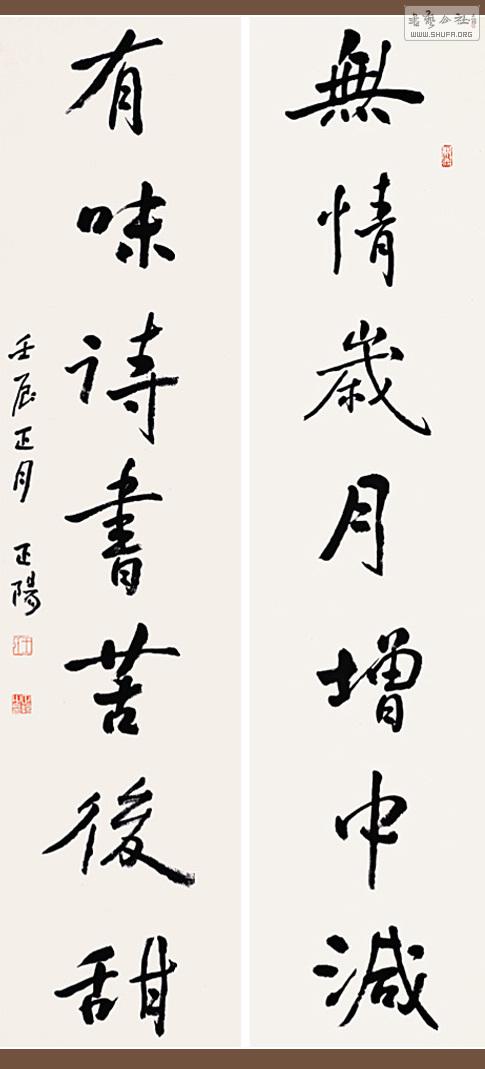 無情歲月增中減
有味詩書苦後甜
壬辰正月 正陽
書藝公社
WWW.SHUFA.ORG